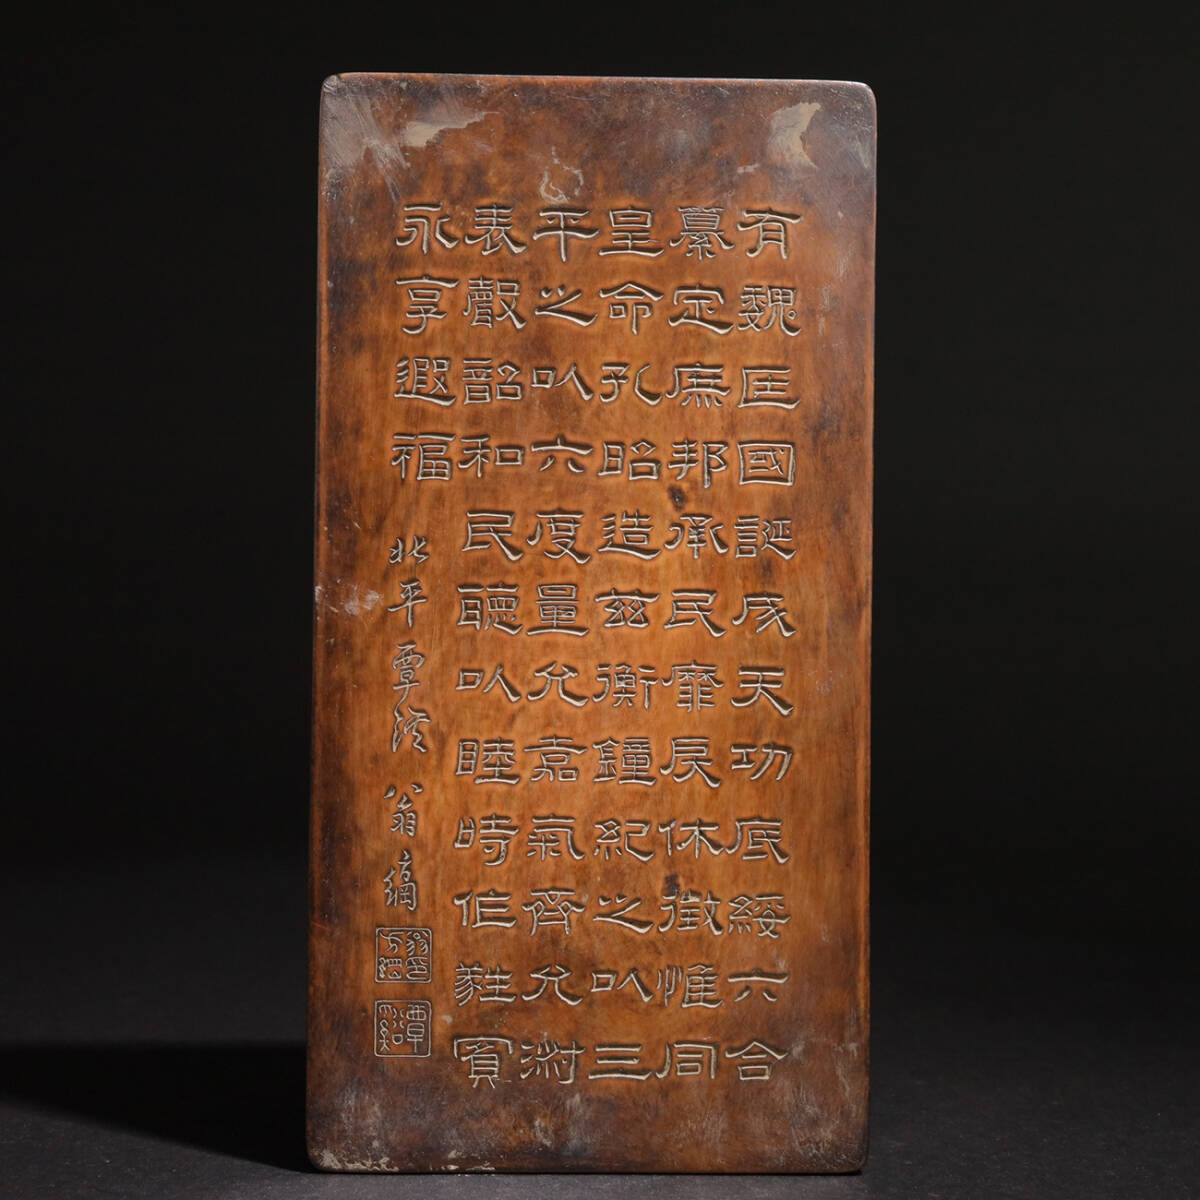 有魏匡國誕成天功底綏六合
纂定庶邦承民靡戾休徵惟同
皇命孔昭造茲衡鐘紀之以三
平之以六度量允嘉氣齊允淑
表聲韶和民聽以睦時作蕤賓
永享遐福
北平覃溪翁綱
翁印方綱
覃谿